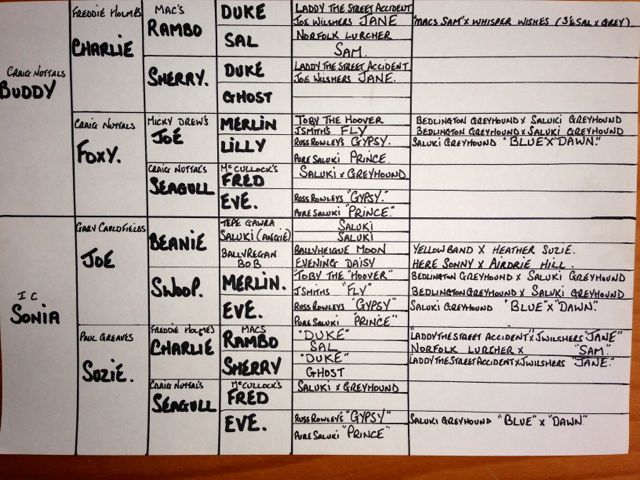 CRAIG NUTTALS
BUDDY
FREDDIE HOLMES
CHARLIE
MAC'S
RAMBO
DUKE
LADDY THE STREET ACCIDENT
JOE WILSHERS JANE
"MACS SAM" X WHISPER WISHES (3/4 SAL X GREY)
SAL
NORFOLK LURCHER
SAM.
SHERRY.
DUKE
LADDY THE STREET ACCIDENT
JOE WILSHERS JANE.
GHOST
CRAIG NUTTALS
FOXY.
MICKY DREW'S
JOE
MERLIN
TOBY THE HOOVER
BEDLINGTON GREYHOUND X SALUKI GREYHOUND
JSMITHS FLY
BEDLINGTON GREYHOUND X SALUKI GREYHOUND
LILLY
ROSS ROWLEYS GYPSY.
SALUKI GREYHOUND "BLUE" X "DAWN."
PURE SALUKI PRINCE.
CRAIG NUTTALS
SEAGULL
McCULLOCK'S
FRED
SALUKI X GREYHOUND
EVE.
ROSS ROWLEYS "GYPSY."
PURE SALUKI "PRINCE."
I C
SONIA
GARY CAULDFIELDS
JOE
BEANIE
TEPE GAWRA
SALUKI (ANGIE)
SALUKI
SALUKI
BALLYREGAN
BOB
BALLYHEIGUE MOON
YELLOW BAND X HEATHER SUZIE.
EVENING DAISY
HERE SONNY X AIRDRIE HILL.
SWOOP.
MERLIN.
"TOBY THE "HOOVER"
BEDLINGTON GREYHOUND X SALUKI GREYHOUND
JSMITHS "FLY"
BEDLINGTON GREYHOUND X SALUKI GREYHOUND
EVE.
ROSS ROWLEYS "GYPSY"
SALUKI GREYHOUND "BLUE" X "DAWN".
PURE SALUKI "PRINCE"
PAUL GREAVES
SUZIE.
FREDDIE HOLMES
CHARLIE
MACS
RAMBO
"DUKE"
"LADDY THE STREET ACCIDENT" X J WILSHERS "JANE"
SAL
NORFOLK LURCHER X "SAM."
SHERRY
"DUKE"
LADDY THE STREET ACCIDENT X J WILSHERS "JANE."
GHOST
CRAIG NUTTAL'S
SEAGULL
McCULLOCK'S
FRED
SALUKI X GREYHOUND
EVE.
ROSS ROWLEYS "GYPSY"
SALUKI GREYHOUND "BLUE" X "DAWN"
PURE SALUKI "PRINCE"